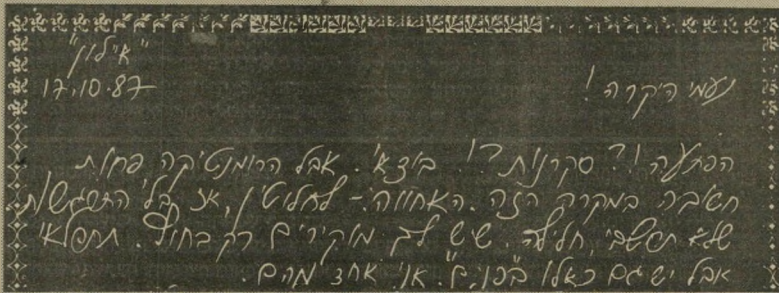 "אילון"
17.10.87
נעמי היקרה!
הפתעה!? סקרנות?! בודאי. אבל הרומנטיקה פחות
חשובה במקרה הזה. האחווה - לחלוטין, אז בלי התרגשות
שלא תחשבי, חלילה, שיש לך מוקירים רק בחו"ל. תתפלאי
אבל יש גם כאלו ב"פנים". אני אחד מהם.